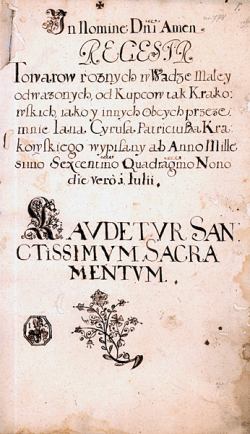 In Nomine Dni Amen
REGESTR
Towarow roznych w Wadze Małey
odwazonych, od Kupcow tak Krako
wskich, iako y innych Obcych przeze
mnie Iana Cyrusa Patriciusza Kra
kowskiego wypisany ab Anno Mille
simo Sexcentimo Quadragmo Nono
die vero 1. Iulii.
LAUDETUR SAN
CTISSIMUM. SACRA
MENTUM.